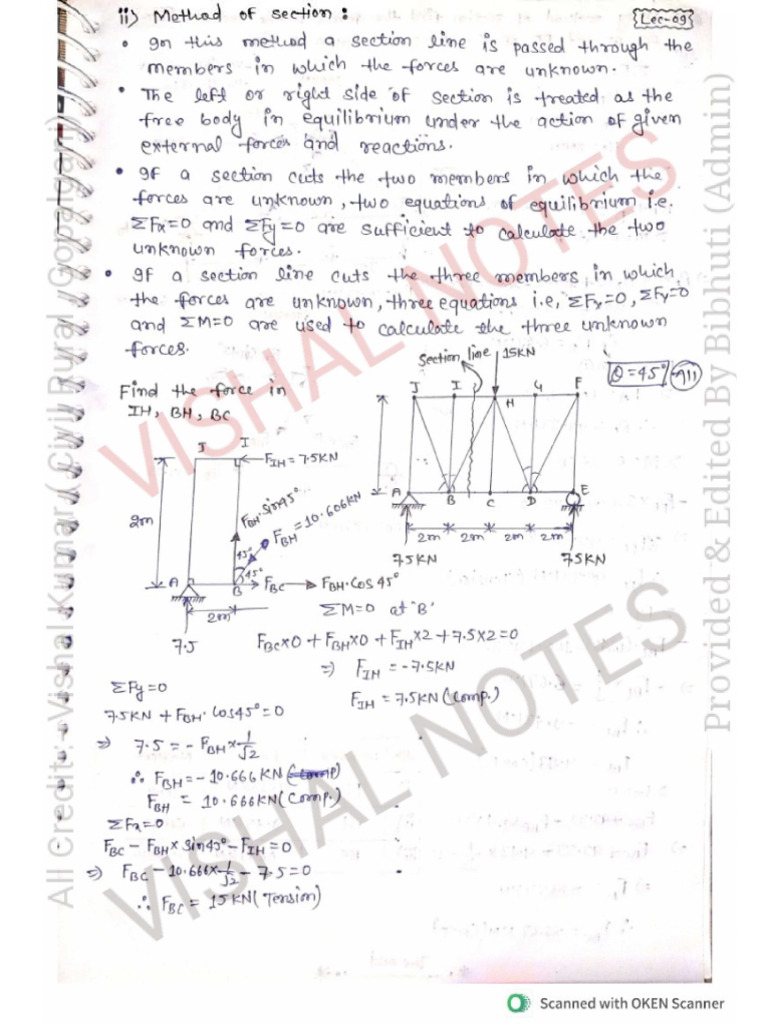 ii) Method of section :
Lec-09
• In this method a section line is passed through the
members in which the forces are unknown.
• The left or right side of section is treated as the
free body in equilibrium under the action of given
external forces and reactions.
• If a section cuts the two members in which the
forces are unknown, two equations of equilibrium i.e.
ΣFx=0 and ΣFy=0 are sufficient to calculate the two
unknown forces.
• If a section line cuts the three members in which
the forces are unknown, three equations i.e, ΣFx=0, ΣFy=0
and ΣM=0 are used to calculate the three unknown
forces.
Section line 15KN
θ=45°
Find the force in
IH, BH, BC
J I H G F
A B C D E
2m 2m 2m 2m
7.5KN 7.5KN
J I
F_IH = 7.5KN
2m
F_BH·Sin45°
F_BH = 10.606KN
45°
45°
A B F_BC F_BH·Cos 45°
2m
7.5
ΣM=0 at 'B'
F_BC×0 + F_BH×0 + F_IH×2 + 7.5×2=0
⇒ F_IH = -7.5KN
F_IH = 7.5KN (Comp.)
ΣFy=0
7.5KN + F_BH·Cos45°=0
⇒ 7.5 = - F_BH × 1/√2
∴ F_BH = - 10.666 KN
F_BH = 10.666KN (Comp.)
ΣFx=0
F_BC - F_BH × Sin45° - F_IH = 0
⇒ F_BC - 10.666 × 1/√2 - 7.5 = 0
∴ F_BC = 15 KN (Tension)
All Credit:- Vishal Kumar (Civil Rural /Gopalganj)
Provided & Edited By Bibhuti (Admin)
VISHAL NOTES
VISHAL NOTES
Scanned with OKEN Scanner